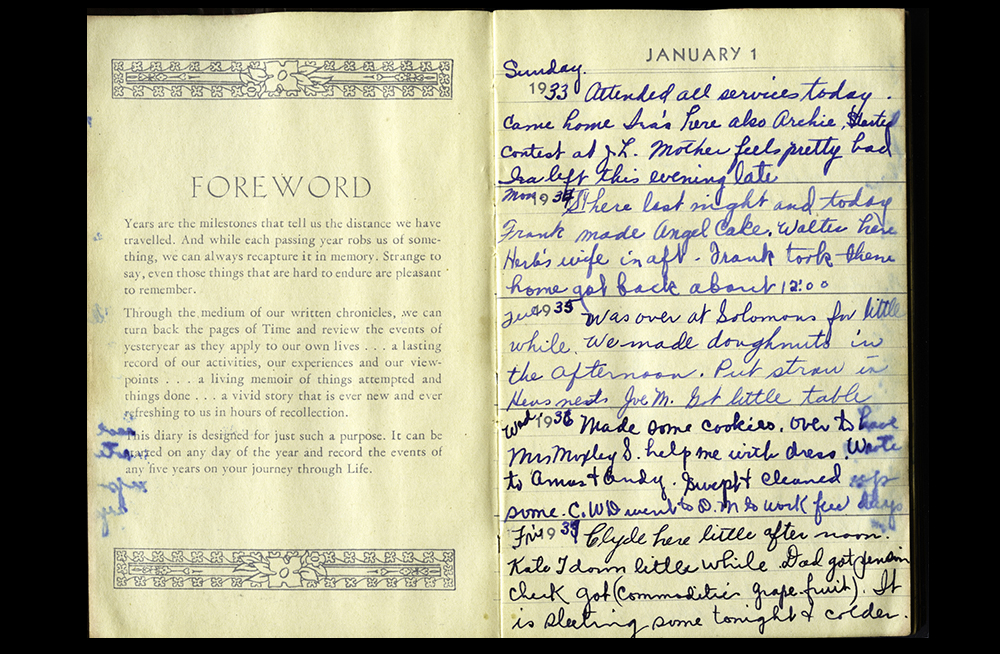 FOREWORD
Years are the milestones that tell us the distance we have
travelled. And while each passing year robs us of some-
thing, we can always recapture it in memory. Strange to
say, even those things that are hard to endure are pleasant
to remember.
Through the medium of our written chronicles, we can
turn back the pages of Time and review the events of
yesteryear as they apply to our own lives . . . a lasting
record of our activities, our experiences and our view-
points . . . a living memoir of things attempted and
things done . . . a vivid story that is ever new and ever
refreshing to us in hours of recollection.
This diary is designed for just such a purpose. It can be
started on any day of the year and record the events of
any five years on your journey through Life.
JANUARY 1
Sunday.
1933 Attended all services today.
Came home Ira's here also Archie, Started
contest at J. L. Mother feels pretty bad
Ira left this evening late
Mon 1934 here last night and today
Frank made Angel Cake. Walter here
Herb's wife in aft. Frank took them
home got back about 12:00
Tue 1935 Was over at Solomons for little
while. We made doughnuts in
the afternoon. Put straw in
Hens nests Joe M. Got little table
Wed 1936 Made some cookies. Over to have
Mrs S. help me with dress. Wrote
to Amos & Andy. Swept & cleaned up
some. C.W.D went to D. M to work few days
Fri 19 Clyde here little after noon.
Kate I down little while Dad got pension
check got (commodities grape fruit). It
is sleeting some tonight & colder.